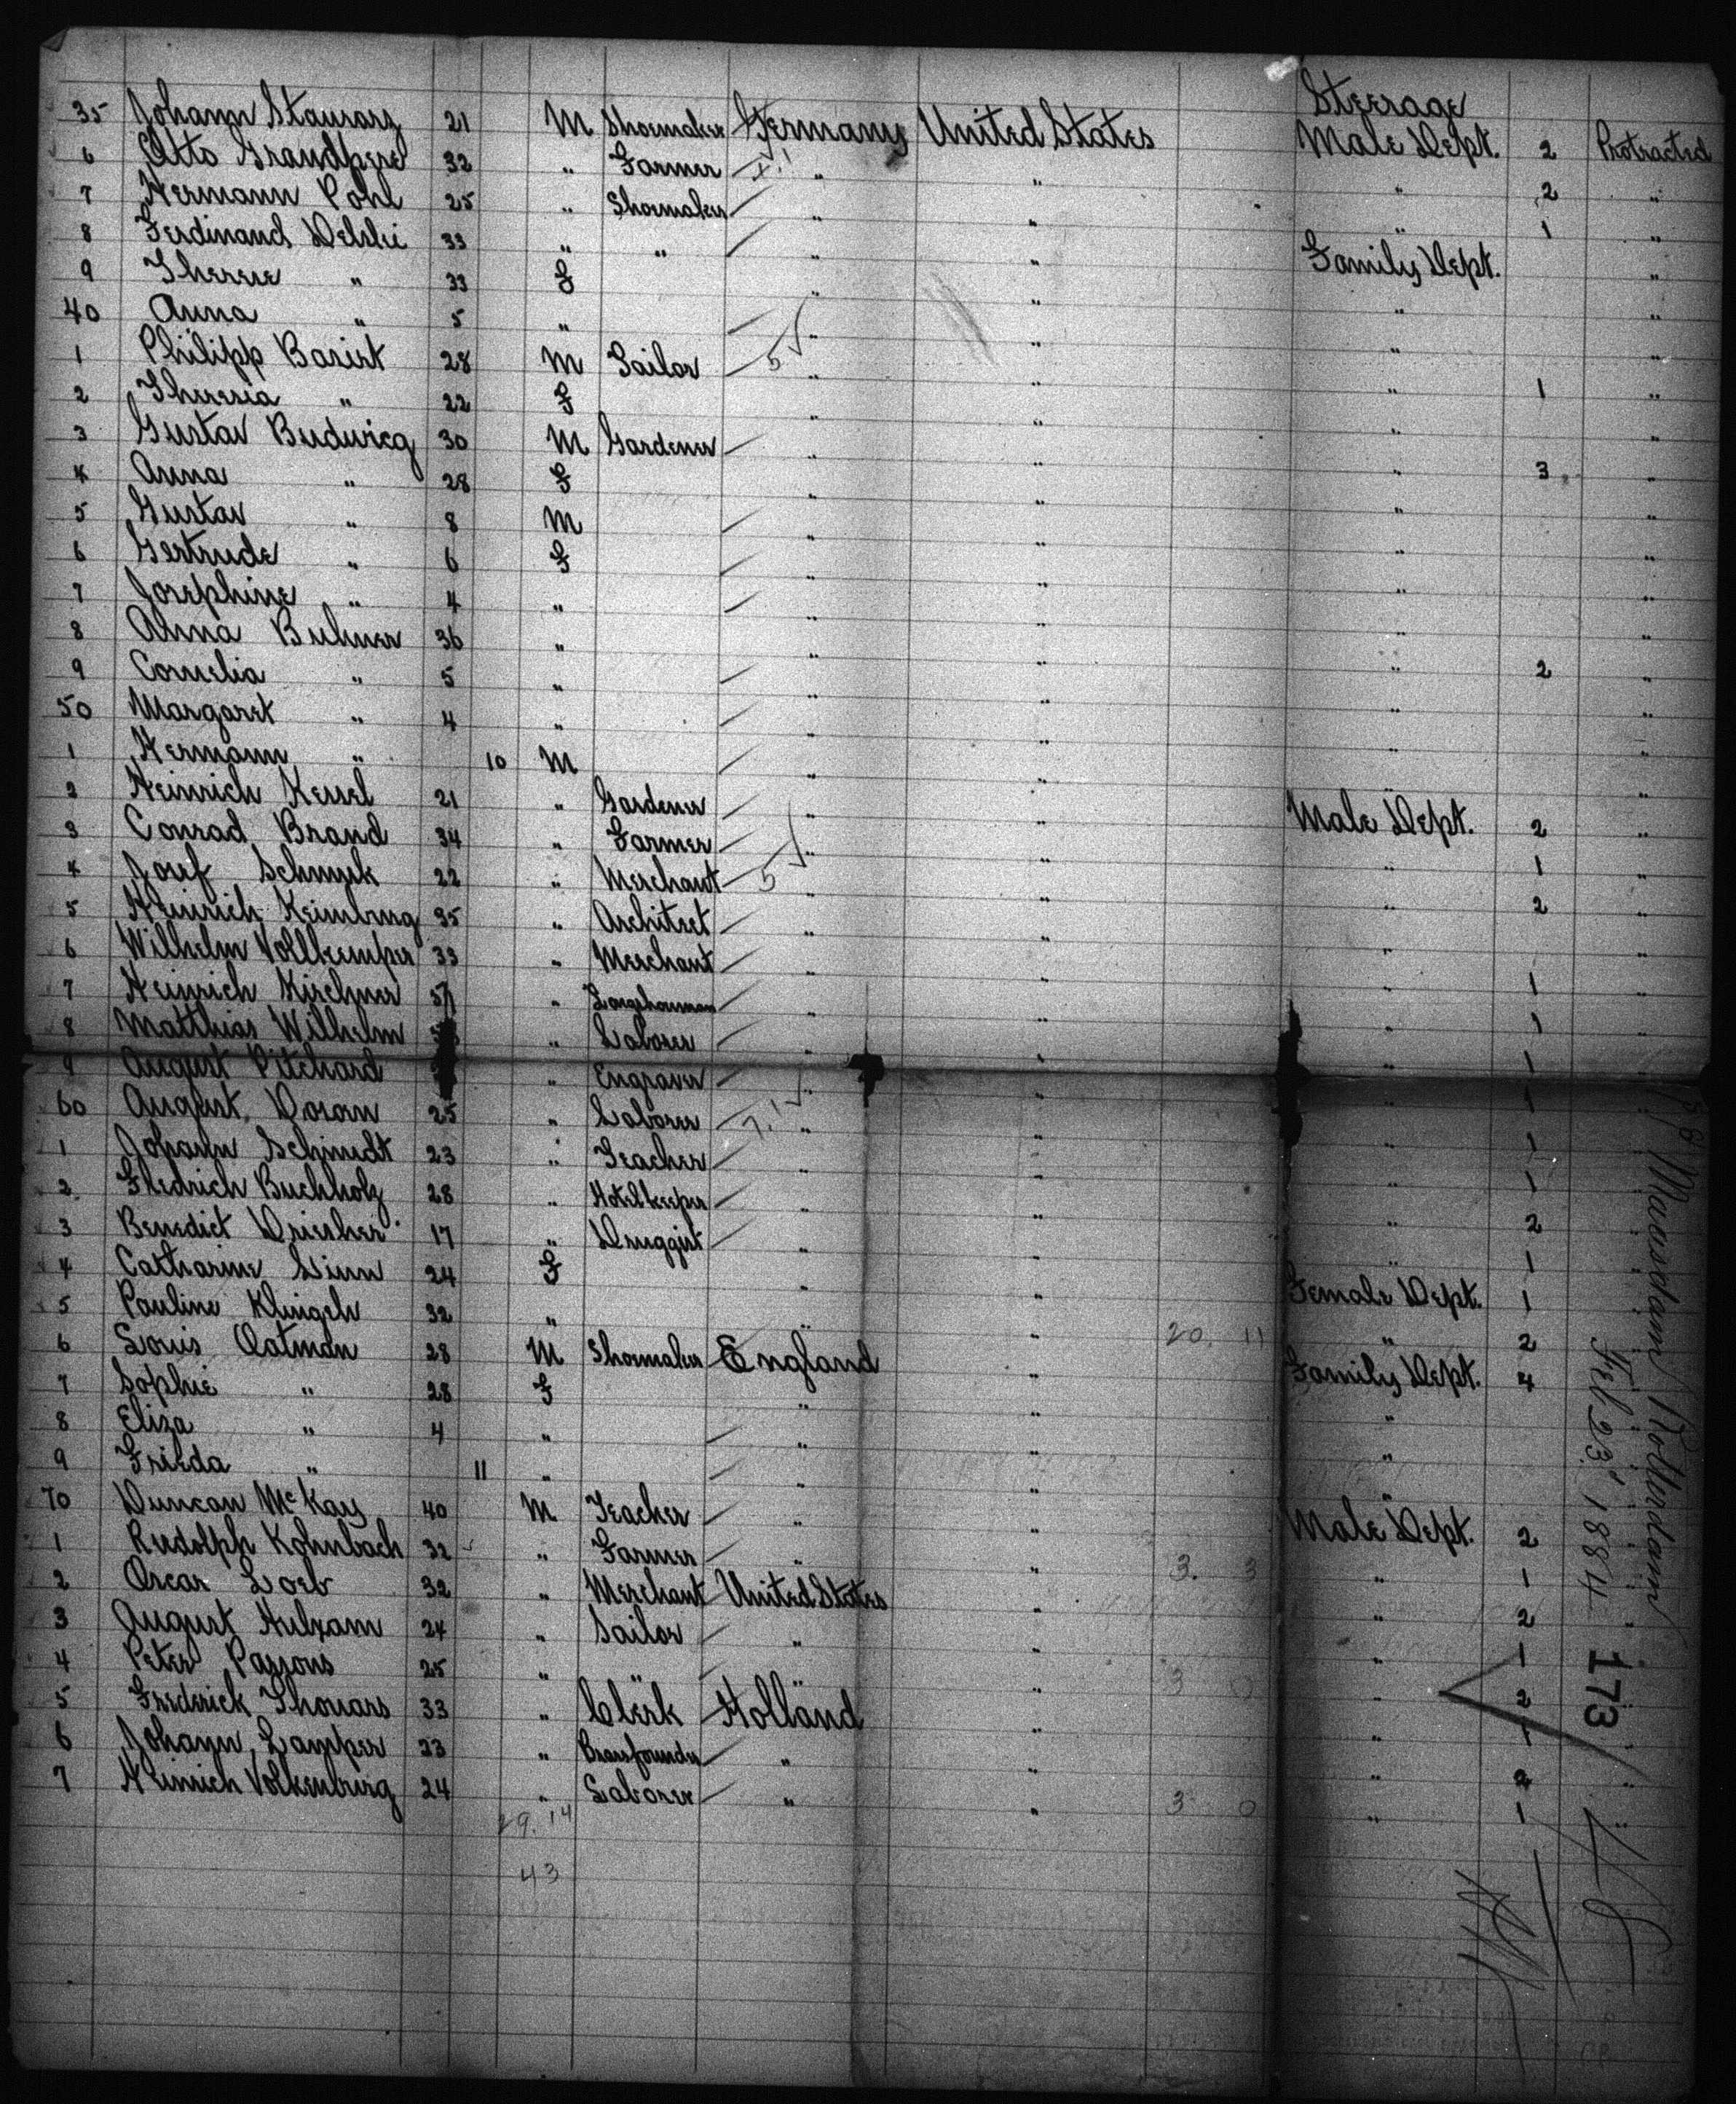 Steerage
35 Johann Stawarz 21 M Shoemaker Germany United States Male Dept. 2 Protracted
6 Otto Grandpere 32 " Farmer " " " 2 "
7 Hermann Pohl 25 " Shoemaker " " " 1 "
8 Ferdinand Delski 33 " " " " Family Dept. "
9 Therese " 33 F " " " "
40 Anna " 5 " " " " "
1 Philipp Barist 28 M Sailor " " " 1 "
2 Theresia " 22 F " " " "
3 Gustav Budwieg 30 M Gardener " " " 3 "
4 Anna " 28 F " " " "
5 Gustav " 8 M " " " "
6 Gertrude " 6 F " " " "
7 Josephine " 4 " " " " "
8 Anna Buhner 36 " " " " 2 "
9 Cornelia " 5 " " " " "
50 Margaret " 4 " " " " "
1 Hermann " 10 M " " " "
2 Heinrich Kessel 21 " Gardener " " Male Dept. 2 "
3 Conrad Brand 34 " Farmer " " " 1 "
4 Josef Schmuk 22 " Merchant " " " 2 "
5 Heinrich Keimburg 35 " Architect " " " "
6 Wilhelm Vollkemper 33 " Merchant " " " 1 "
7 Heinrich Kirchner 51 " Longshoreman " " " 1 "
8 Matthias Wilhelm " Laborer " " " 1 "
9 August Pitchard " Engraver " " " 1 "
60 August Doran 25 " Laborer " " " 1 "
1 Johann Schmidt 23 " Teacher " " " 1 "
2 Friedrich Buchholz 28 " Hotelkeeper " " " 2 "
3 Benedict Driesher 17 " Druggist " " " 1 "
4 Catharine Linn 24 F " " Female Dept. 1 "
5 Pauline Klingeh 32 " " " 20. 11 " 2 "
6 Louis Oatman 28 M Shoemaker England " Family Dept. 4 "
7 Sophie " 28 F " " " "
8 Eliza " 4 " " " " "
9 Frieda " 11 " " " " "
70 Duncan McKay 40 M Teacher " " Male Dept. 2 "
1 Rudolph Kohnbach 32 " Farmer " " 3. 3 " 1 "
2 Oscar Loeb 32 " Merchant United States " " 2 "
3 August Hulzam 24 " Sailor " " " 1 "
4 Peter Parsons 25 " " 3 0 " 2 "
5 Frederick Thouars 33 " Clerk Holland " " 1 "
6 Johann Lamper 23 " Brassfounder " " " 2 "
7 Heinrich Volkenburg 24 " Laborer " " 3 0 " 1 "
29. 14
43
Maasdam Rotterdam
Feb 23 1884
173